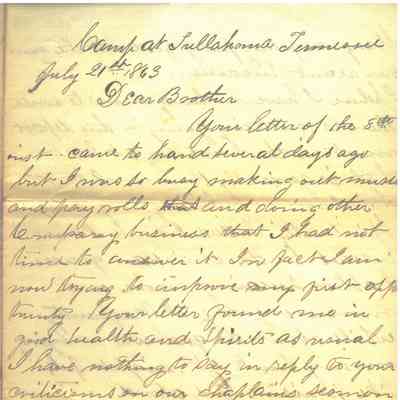 Camp at Tullahoma Tennessee
July 21st 1863
Dear Brother
Your letter of the 8th
inst. came to hand several days ago
but I was so busy making out muster
and pay rolls and doing other
temporary business that I had not
time to answer it In fact I am
now trying to improve my first opp
tunity Your letter found me in
good health and spirits as usual
I have nothing to say in reply to your
criticisms on our chaplains sermon